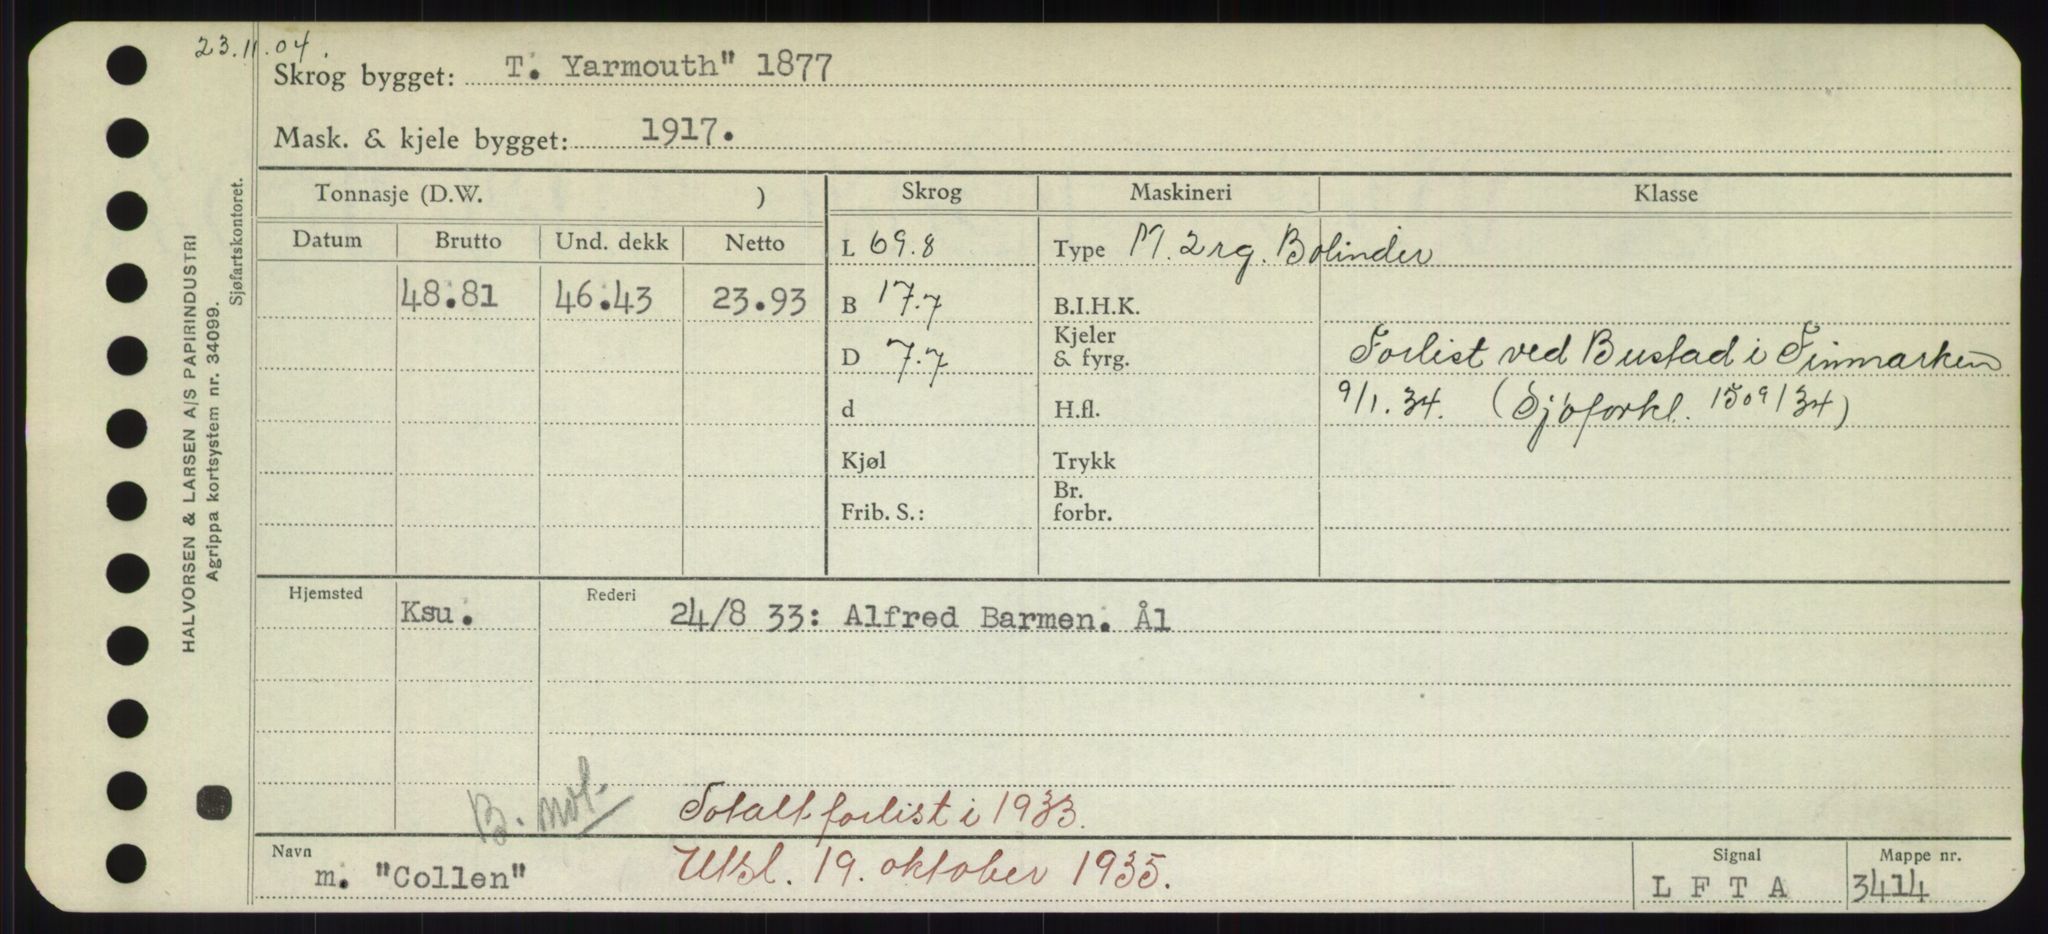 23.11.04.
Skrog bygget: T. Yarmouth" 1877
Mask. & kjele bygget: 1917.
HALVORSEN & LARSEN A/S PAPIRINDUSTRI
Agrippa kortsystem nr. 34099.
Sjøfartskontoret.
Tonnasje (D.W. ) Skrog Maskineri Klasse
Datum Brutto Und. dekk Netto L 69.8 Type M. 2rg. Bolinder
48.81 46.43 23.93 B 17.7 B.I.H.K.
D 7.7 Kjeler & fyrg. Forlist ved Bustad i Finmarken
d H.fl. 9/1.34. (Sjøforkl. 1509/34)
Kjøl Trykk
Frib. S.: Br. forbr.
Hjemsted Ksu. Rederi 24/8 33: Alfred Barmen. Ål
B. not. Totalt forlist i 1933.
Navn m. "Collen" Utsl. 19. oktober 1935. Signal L F T A Mappe nr. 3414